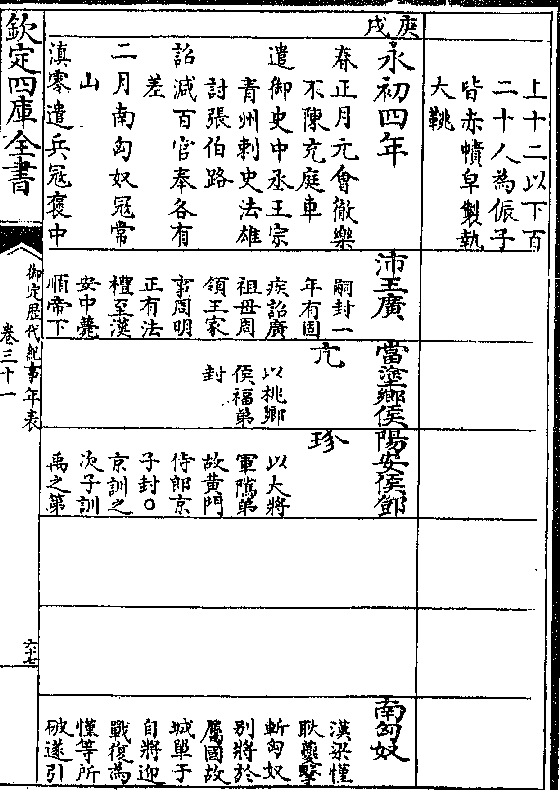 上十二以下百
二十人為侲子
皆赤幘皁製執
大鞉
庚戌
永初四年
春正月元會徹樂
不陳充庭車
遣御史中丞王宗
青州刺史法雄
討張伯路
詔減百官奉各有
差
二月南匈奴冦常
山
滇零遣兵冦褒中
沛王廣
嗣封一
年有固
疾詔廣
祖母周
領王家
事周明
正有法
禮至漢
安中薨
順帝下
當塗鄉侯
亢
以桃鄉
侯福弟
封
陽安侯鄧
珍
以大將
軍隲弟
故黄門
侍郎京
子封○
京訓之
次子訓
禹之第
南匈奴
漢梁慬
耿夔擊
斬匈奴
别將於
屬國故
城單于
自將迎
戰復為
慬等所
破遂引
欽定四庫全書
御定歴代紀事年表
卷三十一
六十七